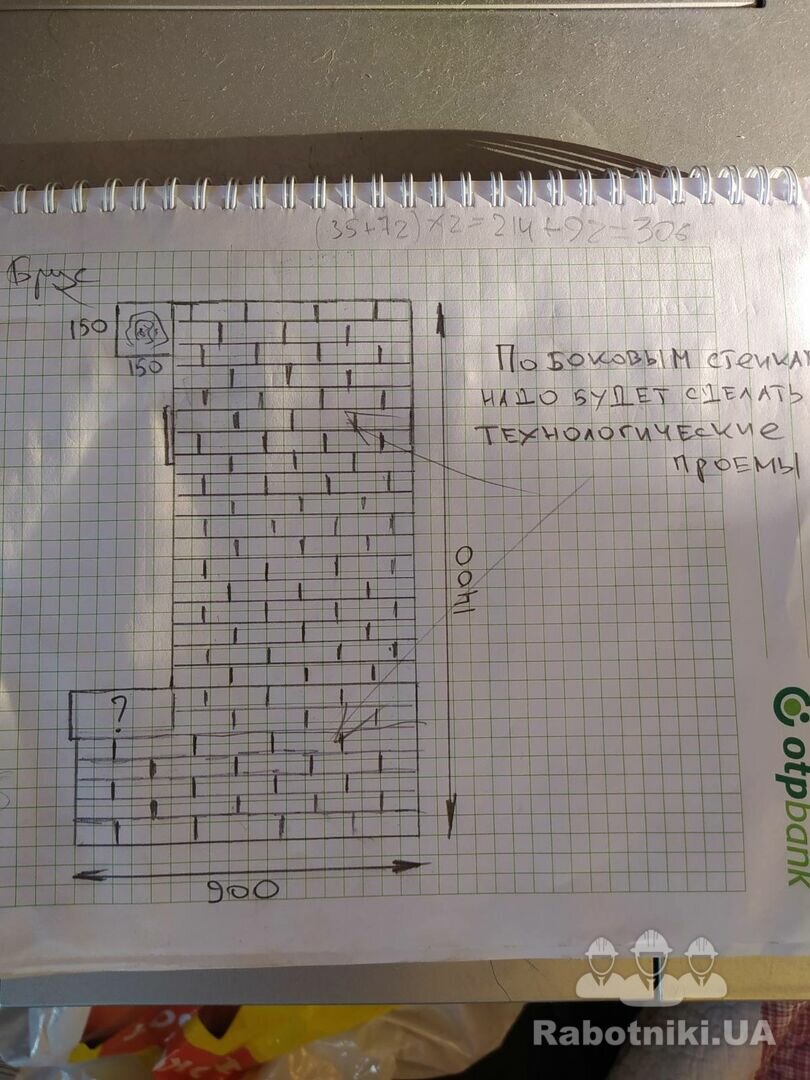 (35+72)×2=214+92=306
Брус
150
150
По боковым стенкам
надо будет сделать
технологические
проемы
1400
?
900
otpbank
Rabotniki.UA